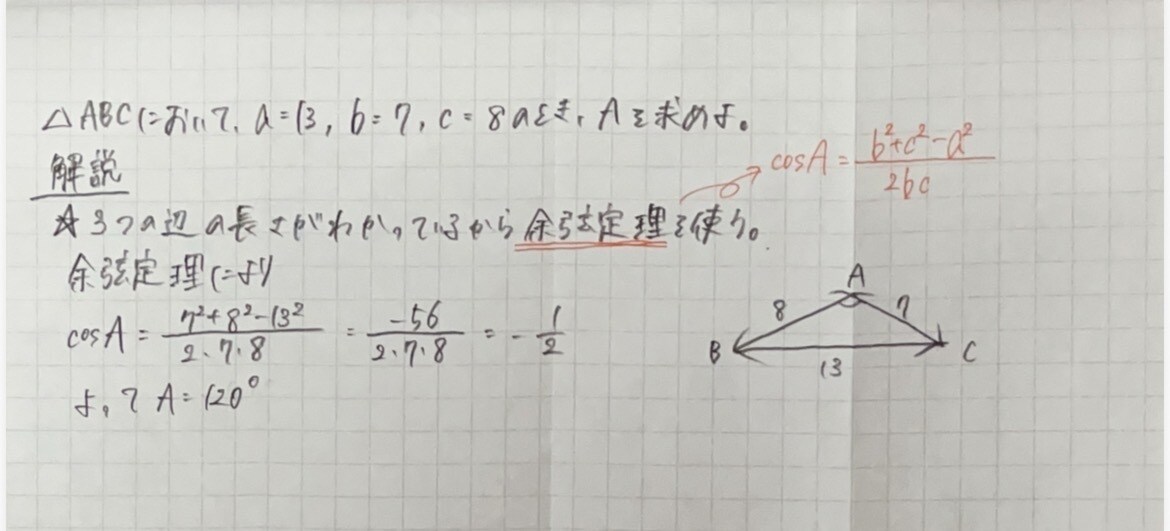 △ABCにおいて、a=13, b=7, c=8のとき、Aを求めよ。
解説
cosA = (b²+c²-a²)/(2bc)
☆3つの辺の長さがわかっているから余弦定理を使う。
余弦定理により
cosA = (7²+8²-13²)/(2・7・8) = (-56)/(2・7・8) = -1/2
よって A=120°
A
8 7
B C
13